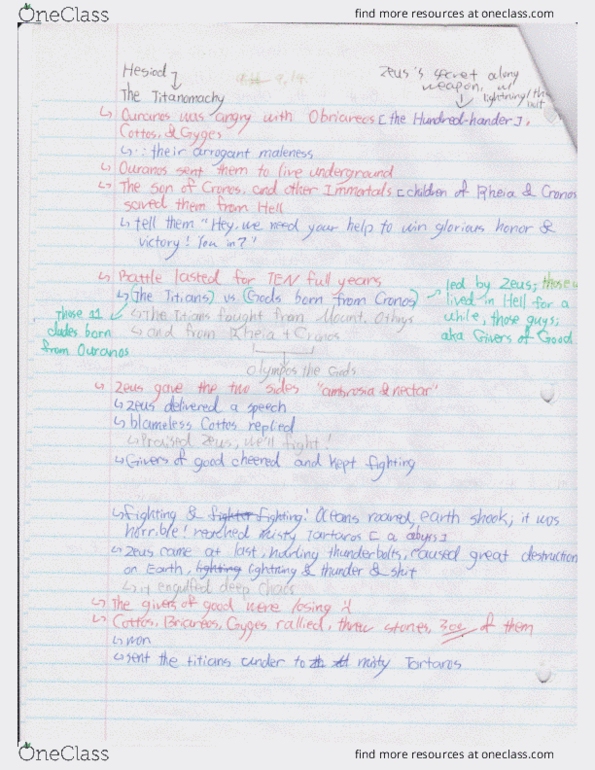 OneClass
find more resources at oneclass.com
Hesiod
Zeus's secret along
weapon, w/
lightning/
The Titanomachy
Ouranos was angry with Obriareos [the Hundred-hander],
Cottos, & Gyges
∵ their arrogant maleness
Ouranos sent them to live underground
The son of Cronos, and other Immortals [children of Rheia & Cronos
saved them from Hell
tell them "Hey, we need your help to win glorious honor &
victory! You in?"
Battle lasted for TEN full years
(The Titians) vs (Gods born from Cronos)
led by Zeus; those
lived in Hell for a
while, those guys;
aka Givers of Good
Those 11
dudes born
from Ouranos
The Titians fought from Mount. Othys
and from Rheia + Cronos
Olympos the Gods
Zeus gave the two sides "ambrosia & nectar"
Zeus delivered a speech
blameless Cottos replied
Praised Zeus, we'll fight!
Givers of good cheered and kept fighting
Fighting & fighter fighting! Oceans roared, earth shook; it was
horrible! reached misty Tartaros [a abyss]
Zeus came at last, hurling thunderbolts, caused great destruction
on Earth, lighting lightning & thunder & shit
it engulfed deep chaos
The givers of good were losing
Cottos, Briareos, Gyges rallied, threw stones, 300 of them
won
sent the titians under to misty Tartaros
OneClass
find more resources at oneclass.com